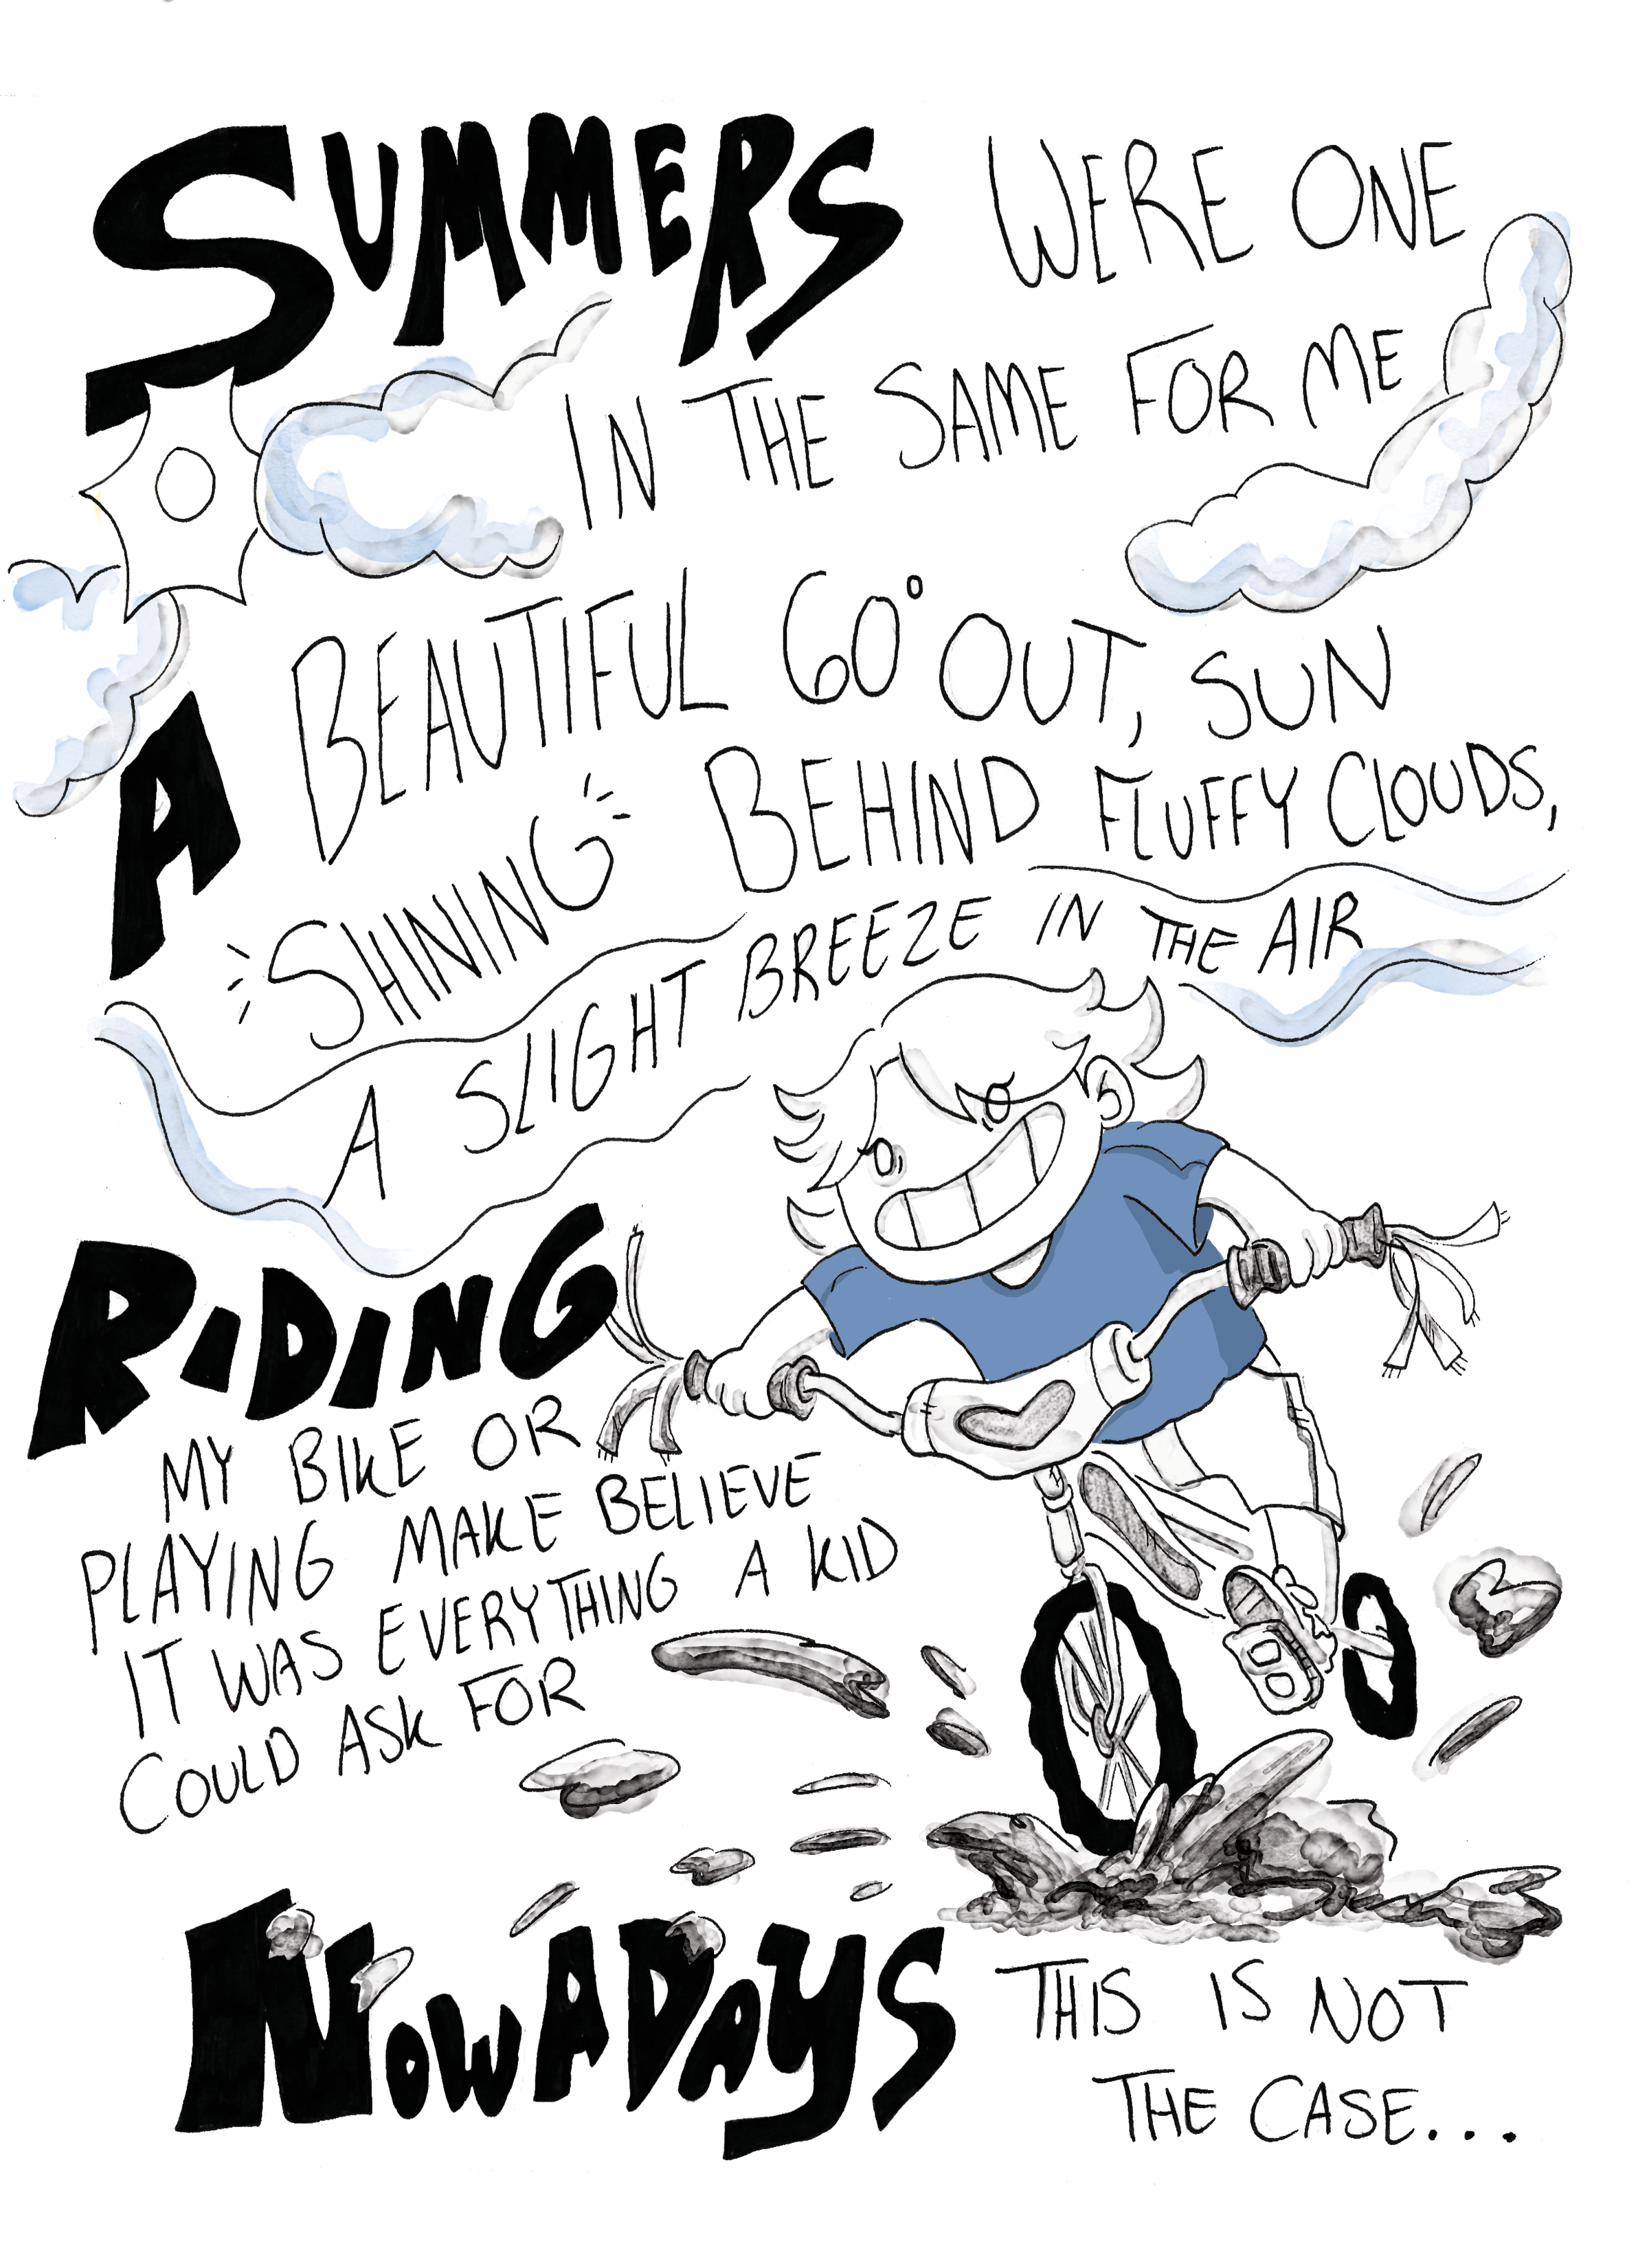 SUMMERS WERE ONE
IN THE SAME FOR ME
A BEAUTIFUL 60° OUT, SUN
SHINING BEHIND FLUFFY CLOUDS,
A SLIGHT BREEZE IN THE AIR
RIDING
MY BIKE OR
PLAYING MAKE BELIEVE
IT WAS EVERYTHING A KID
COULD ASK FOR
NOWADAYS THIS IS NOT
THE CASE...